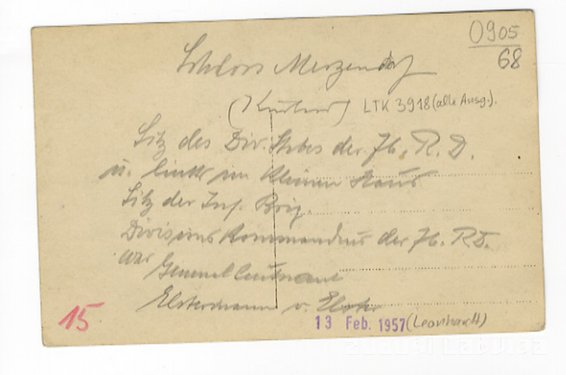 0905
68
Schloss Merzendorf
(Kurland) LTK 3918 (alle Ausg.).
Sitz des Div. Stabes der 76. R. D.
u. links im kleinen Haus
Sitz der Inf. Brig.
Divisions Kommandeur der 76. RD.
war
Generalleutnant
Elstermann v. Elster
15
13 Feb. 1957 (Leonhardt)